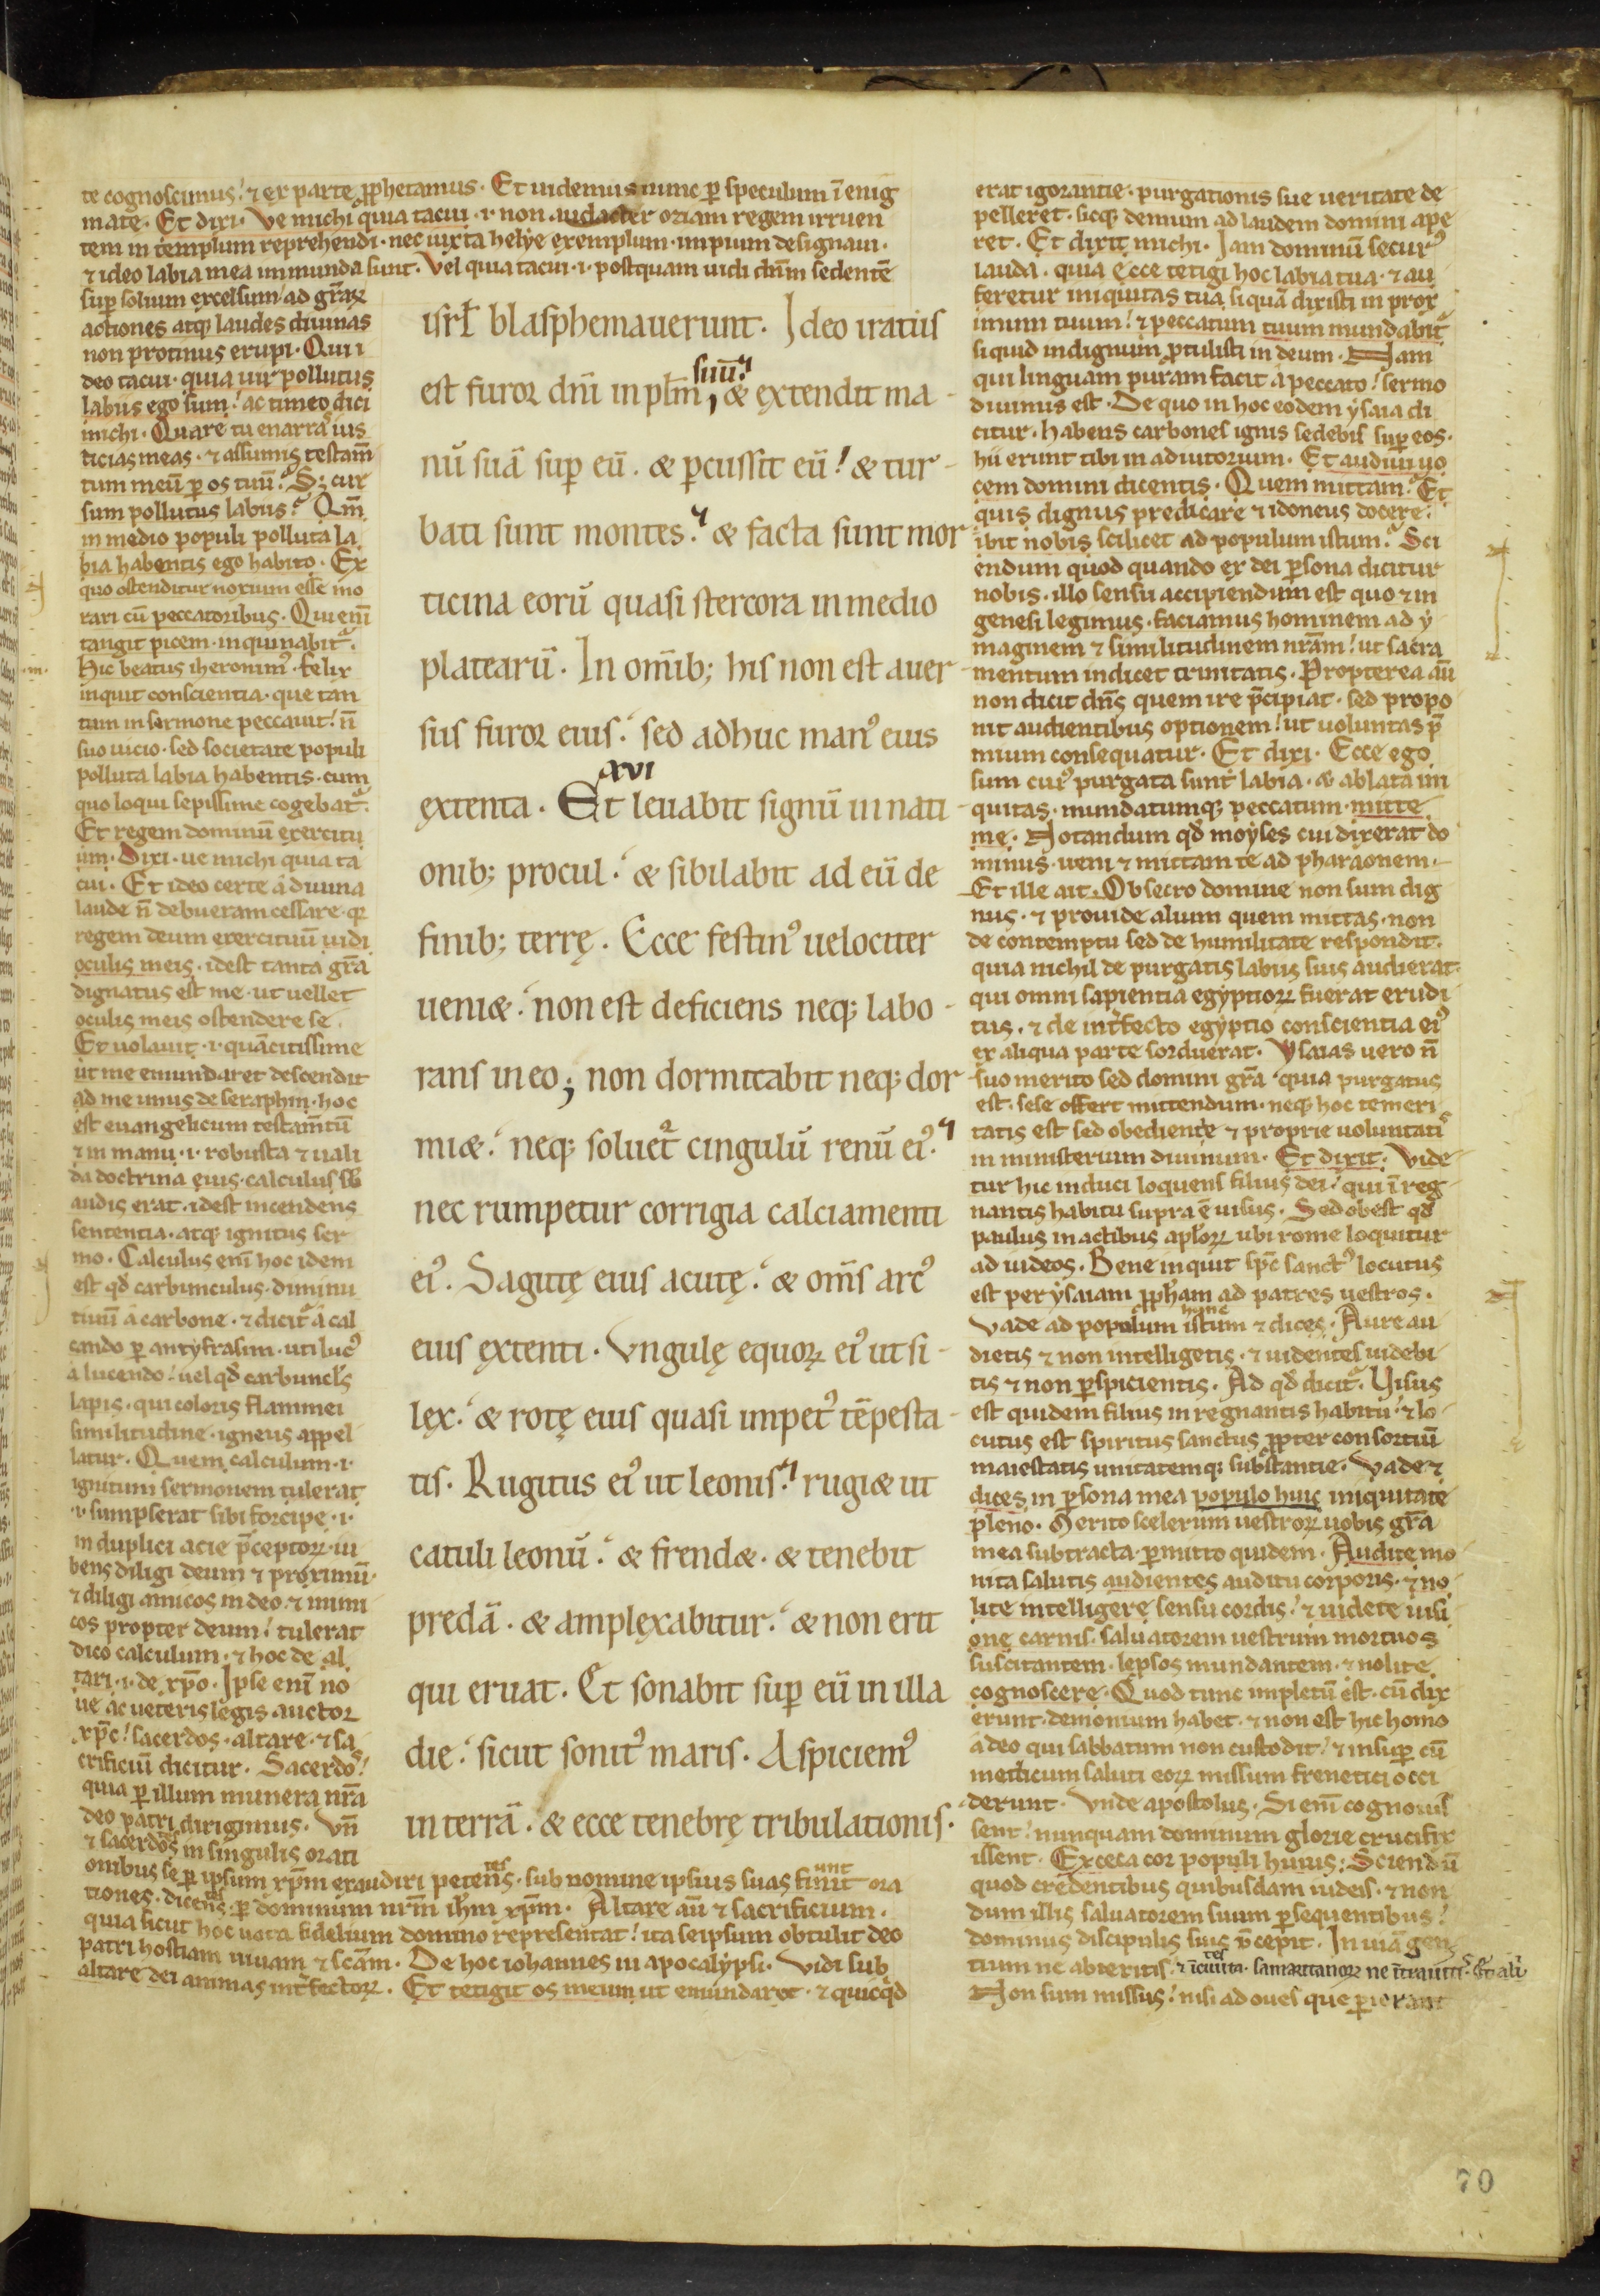 te cognoscimus. ⁊ ex parte ꝓphetamus. Et uidemus nunc ꝑ speculum ī enig
mate. Et dixi. Ve michi quia tacui .i. non audacter oziam regem irruen
tem in templum reprehendi. nec iuxta helye exemplum. impium designaui.
⁊ ideo labia mea inmunda sunt. Vel quia tacui .i. postquam uidi dn̄m sedentē
suꝑ solium excelsum ad gr̄aꝝ
actiones atqꝫ laudes diuinas
non protinus erupi. Qui i
deo tacui. quia uir pollutus
labiis ego sum. ac timeo dici
michi. Quare tu enarras ius
ticias meas. ⁊ assumis testam̄
tum meū ꝑ os tuū. Sꝫ cur
sum pollutus labiis? Qm̄
in medio populi polluta la
bia habentis ego habito. Ex
quo ostenditur noxium esse mo
rari cū peccatoribus. Qui eni̅
tangit picem. inquinabit᷑.
Hic beatus iheronim᷒. felix
inquit conscientia. que tan
tum in sermone peccauit. n̄
suo uicio. sed societate populi
polluta labia habentis. cum
quo loqui sepissime cogebat᷑.
Et regem dominū exercitu
um. Dixi. ue michi quia ta
cui. Et ideo certe a diuina
laude n̄ debueram cessare. qꝛ
regem deum exercituū uidi
oculis meis. idest tanta gr̄a
dignatus est me. ut uellet
oculis meis ostendere se.
Et uolauit .i. quā citissime
ut me emundaret descendit
ad me unus de seraphin. hoc
est euangelicum testam̄tū
⁊ in manu .i. robusta ⁊ uali
da doctrina eius. calculus
audis erat. idest incendens
sententia. atqꝫ ignitus ser
mo. Calculus enī hoc idem
est qđ carbunculus. diminu
tiuū a carbone. ⁊ dicit᷑ a cal
cando ꝑ antyfrasim. uti luc᷒
a lucendo. uel qđ carbuncl᷒s
lapis. qui coloris flammei
similitudine. igneus appel
latur. Quem calculum .i.
ignitum sermonem tulerat
.i. sumpserat sibi forcipe .i.
in duplici acie p̄ceptoꝝ iu
bens diligi deum ⁊ proximū.
⁊ diligi amicos in deo ⁊ inimi
cos propter deum. tulerat
dico calculum. ⁊ hoc de al
tari .i. de xp̄o. Ipse enī no
ue ac ueteris legis auctor
xp̄c. sacerdos. altare. ⁊ sa
crificiū dicitur. Sacerdos.
quia ꝑ illum munera nr̄a
deo patri dirigimus. Vn̄
⁊ sacerdos in singulis orati
onibus se ꝑ ipsum xp̄m exaudiri petens. sub nomine ipsius suas finiunt ora
tiones. dicentes. ꝑ dominum nr̄m ih̄m xp̄m. Altare aū ⁊ sacrificium.
quia sicut hoc uota fidelium domino representat. ita seipsum obtulit deo
patri hostiam uiuam ⁊ sc̄am. De hoc iohannes in apocalypsi. Vidi sub
altare dei animas int̄fectoꝝ. Et tetigit os meum ut emundaret. ⁊ quicqđ
isrł blasphemauerunt. Ideo iratus
est furor dn̄i in płm suū. & extendit ma-
nū suā suꝑ eū. & ꝑcussit eū. & tur-
bati sunt montes. & facta sunt mor
ticina eorū quasi stercora in medio
platearū. In om̄ibꝫ his non est auer-
sus furor eius. sed adhuc man᷒ eius
xvi
extenta. Et leuabit signū in nati-
onibꝫ procul. & sibilabit ad eū de
finibꝫ terrę. Ecce festin᷒ uelociter
ueni&. non est deficiens neqꝫ labo-
rans in eo; non dormitabit neqꝫ dor-
mi&. neqꝫ soluet᷑ cingulū renū ei᷒.
nec rumpetur corrigia calciamenti
ei᷒. Sagittę eius acutę. & om̄s arc᷒
eius extenti. Vngulę equoꝝ ei᷒ ut si-
lex. & rotę eius quasi impet᷒ tēpesta-
tis. Rugitus ei᷒ ut leonis. rugi& ut
catuli leonū. & frend&. & tenebit
predā. & amplexabitur. & non erit
qui eruat. Et sonabit suꝑ eū in illa
die. sicut sonit᷒ maris. Aspiciem᷒
in terrā. & ecce tenebrę tribulationis.
erat igorantie. purgationis sue ueritate de
pelleret. sicqꝫ demum ad laudem domini ape
ret. Et dixit michi. Iam dominū secur᷒
lauda. quia ecce tetigi hoc labia tua. ⁊ au
feretur iniquitas tua siquā dixisti in prox
imum tuum. ⁊ peccatum tuum mundabit᷑
siquid indignum ꝓtulisti in deum. Nam
qui linguam puram facit a peccato. sermo
diuinus est. De quo in hoc eodem ysaia di
citur. habens carbones ignis sedebis suꝑ eos.
hii erunt tibi in adiutorium. Et audiui uo
cem domini dicentis. Quem mittam. Et
quis dignus predicare ⁊ idoneus docere.
ibit nobis scilicet ad populum istum. Sci
endum quod quando ex dei ꝑsona dicitur
nobis. illo sensu accipiendum est quo ⁊ in
genesi legimus. faciamus hominem ad y
maginem ⁊ similitudinem nr̄am. ut sacra
mentum indicet trinitatis. Propterea aū
non dicit dn̄s quem ire p̄cipiat. sed propo
nit audientibus optionem. ut uoluntas p̄
mium consequatur. Et dixi. Ecce ego
sum cui᷒ purgata sunt labia. & ablata ini
quitas. mundatumqꝫ peccatum. mitte
me. Notandum qđ moyses cui dixerat do
minus. ueni ⁊ mittam te ad pharaonem.
Et ille ait. Obsecro domine non sum dig
nus. ⁊ prouide alium quem mittas. non
de contemptu sed de humilitate respondit.
quia nichil de purgatis labiis suis audierat.
qui omni sapientia egyptioꝝ fuerat erudi
tus. ⁊ de int̄fecto egyptio conscientia ei᷒
ex aliqua parte sorduerat. Ysaias uero n̄
suo merito sed domini gr̄a quia purgatus
est. sese offert mittendum. neqꝫ hoc temeri
tatis est sed obediente ⁊ proprie uoluntatis
in ministerium diuinum. Et dixit. Vide
tur hic induci loquens filius dei. qui ī reg
nantis habitu supra ē uisus. Sed obest qđ
paulus in actibus aploꝝ ubi rome loquitur
ad iudeos. Bene inquit spc̄ sanct᷒ locutus
est per ysaiam ꝓph̄am ad patres uestros.
Vade ad populum istum ⁊ dices. Aure au
dietis ⁊ non intelligetis. ⁊ uidentes uidebi
tis ⁊ non ꝑspicientis. Ad qđ dicit᷑. Visus
est quidem filius in regnantis habitu ⁊ lo
cutus est spiritus sanctus ꝓpter consortiū
maiestatis unitatemqꝫ substantie. Vade ⁊
dices in ꝑsona mea populo huic iniquitate
pleno. Merito scelerum uestroꝝ uobis gr̄a
mea subtracta. ꝑmitto quidem. Audite mo
nita salutis audientes auditu corporis. ⁊ no
lite intelligere sensu cordis. ⁊ uidete uisi
one carnis. saluatorem uestrum mortuos
suscitantem. leprosos mundantem. ⁊ nolite
cognoscere. Quod tunc impletū est. cū dix
erunt. demonium habet. ⁊ non est hic homo
a deo qui sabbatum non custodit. ⁊ insuꝑ cū
medicum saluti eoꝝ missum frenetici occi
derunt. Vnde apostolus. Si enī cognouis
sent. nunquam dominum glorie crucifix
issent. Exceca cor populi huius. Sciendū
quod credentibus quibusdam iudeis. ⁊ non
dum illis saluatorem suum ꝑsequentibus.
dominus discipulis suis p̄cepit. In uiā gen
tium ne abieritis. ⁊ ī ciuitates samaritanoꝝ ne ītrauitis.
Non sum missus. nisi ad oues que ꝑierant
70